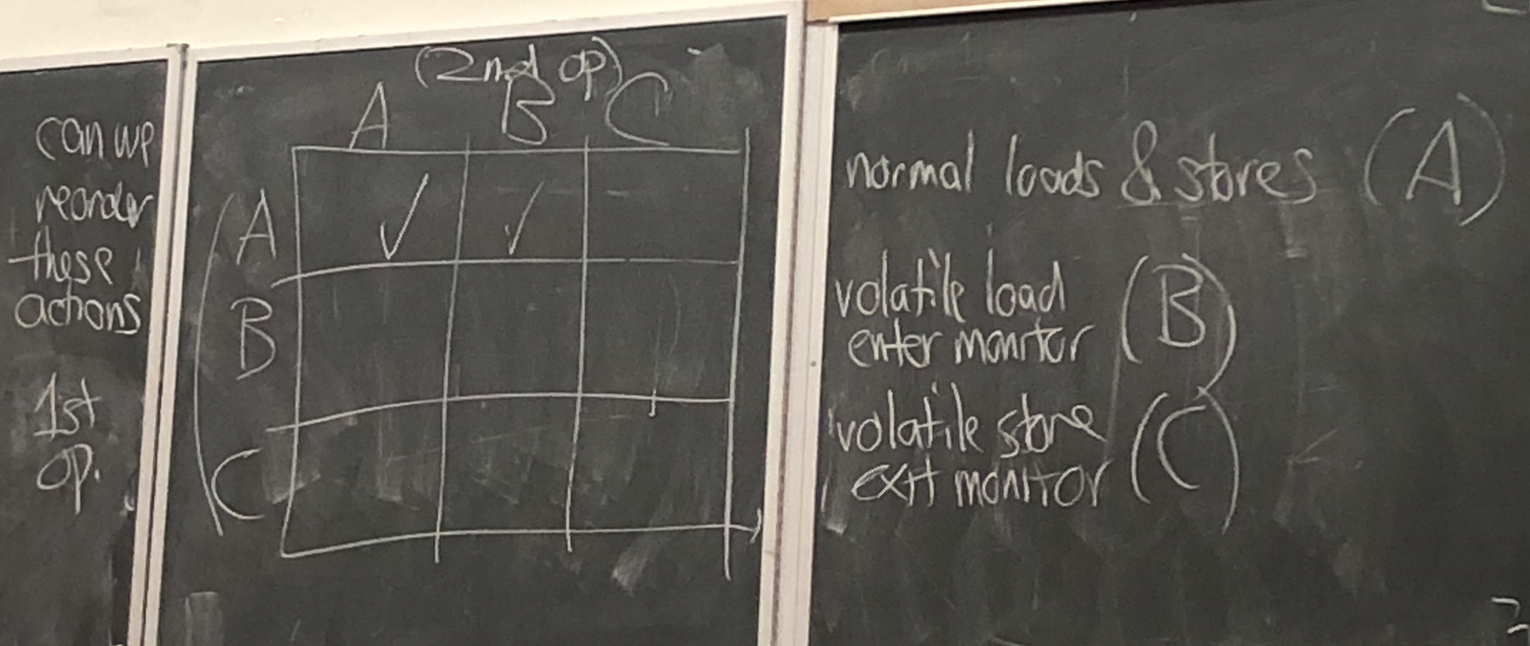 can we
reorder
these
actions
1st
op.
(2nd op)
A B C
A ✓ ✓
B
C
normal loads & stores (A)
volatile load
enter monitor (B)
volatile store
exit monitor (C)